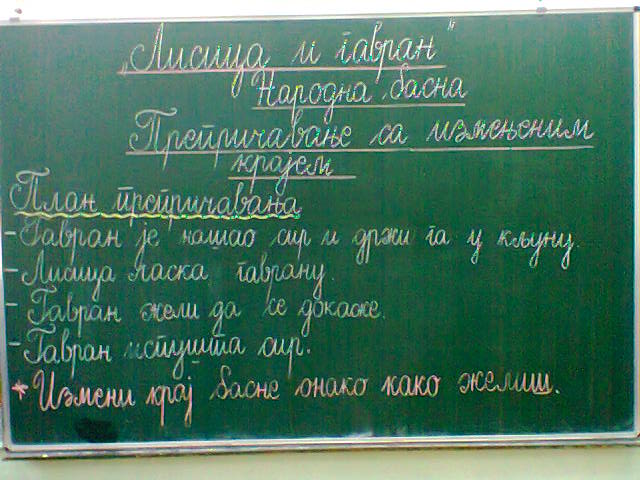 „Лисица и гавран“
Народна басна
Препричавање са измењеним
крајем
План препричавања
- Гавран је нашао сир и држи га у кљуну.
- Лисица ласка гаврану.
- Гавран жели да се докаже.
- Гавран испушта сир.
* Измени крај басне онако како желиш.